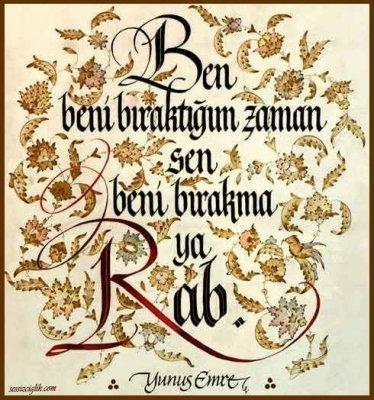 Ben
beni bıraktığım zaman
sen
beni bırakma
ya
Rab..
Yunus Emre
sessizciglik.com